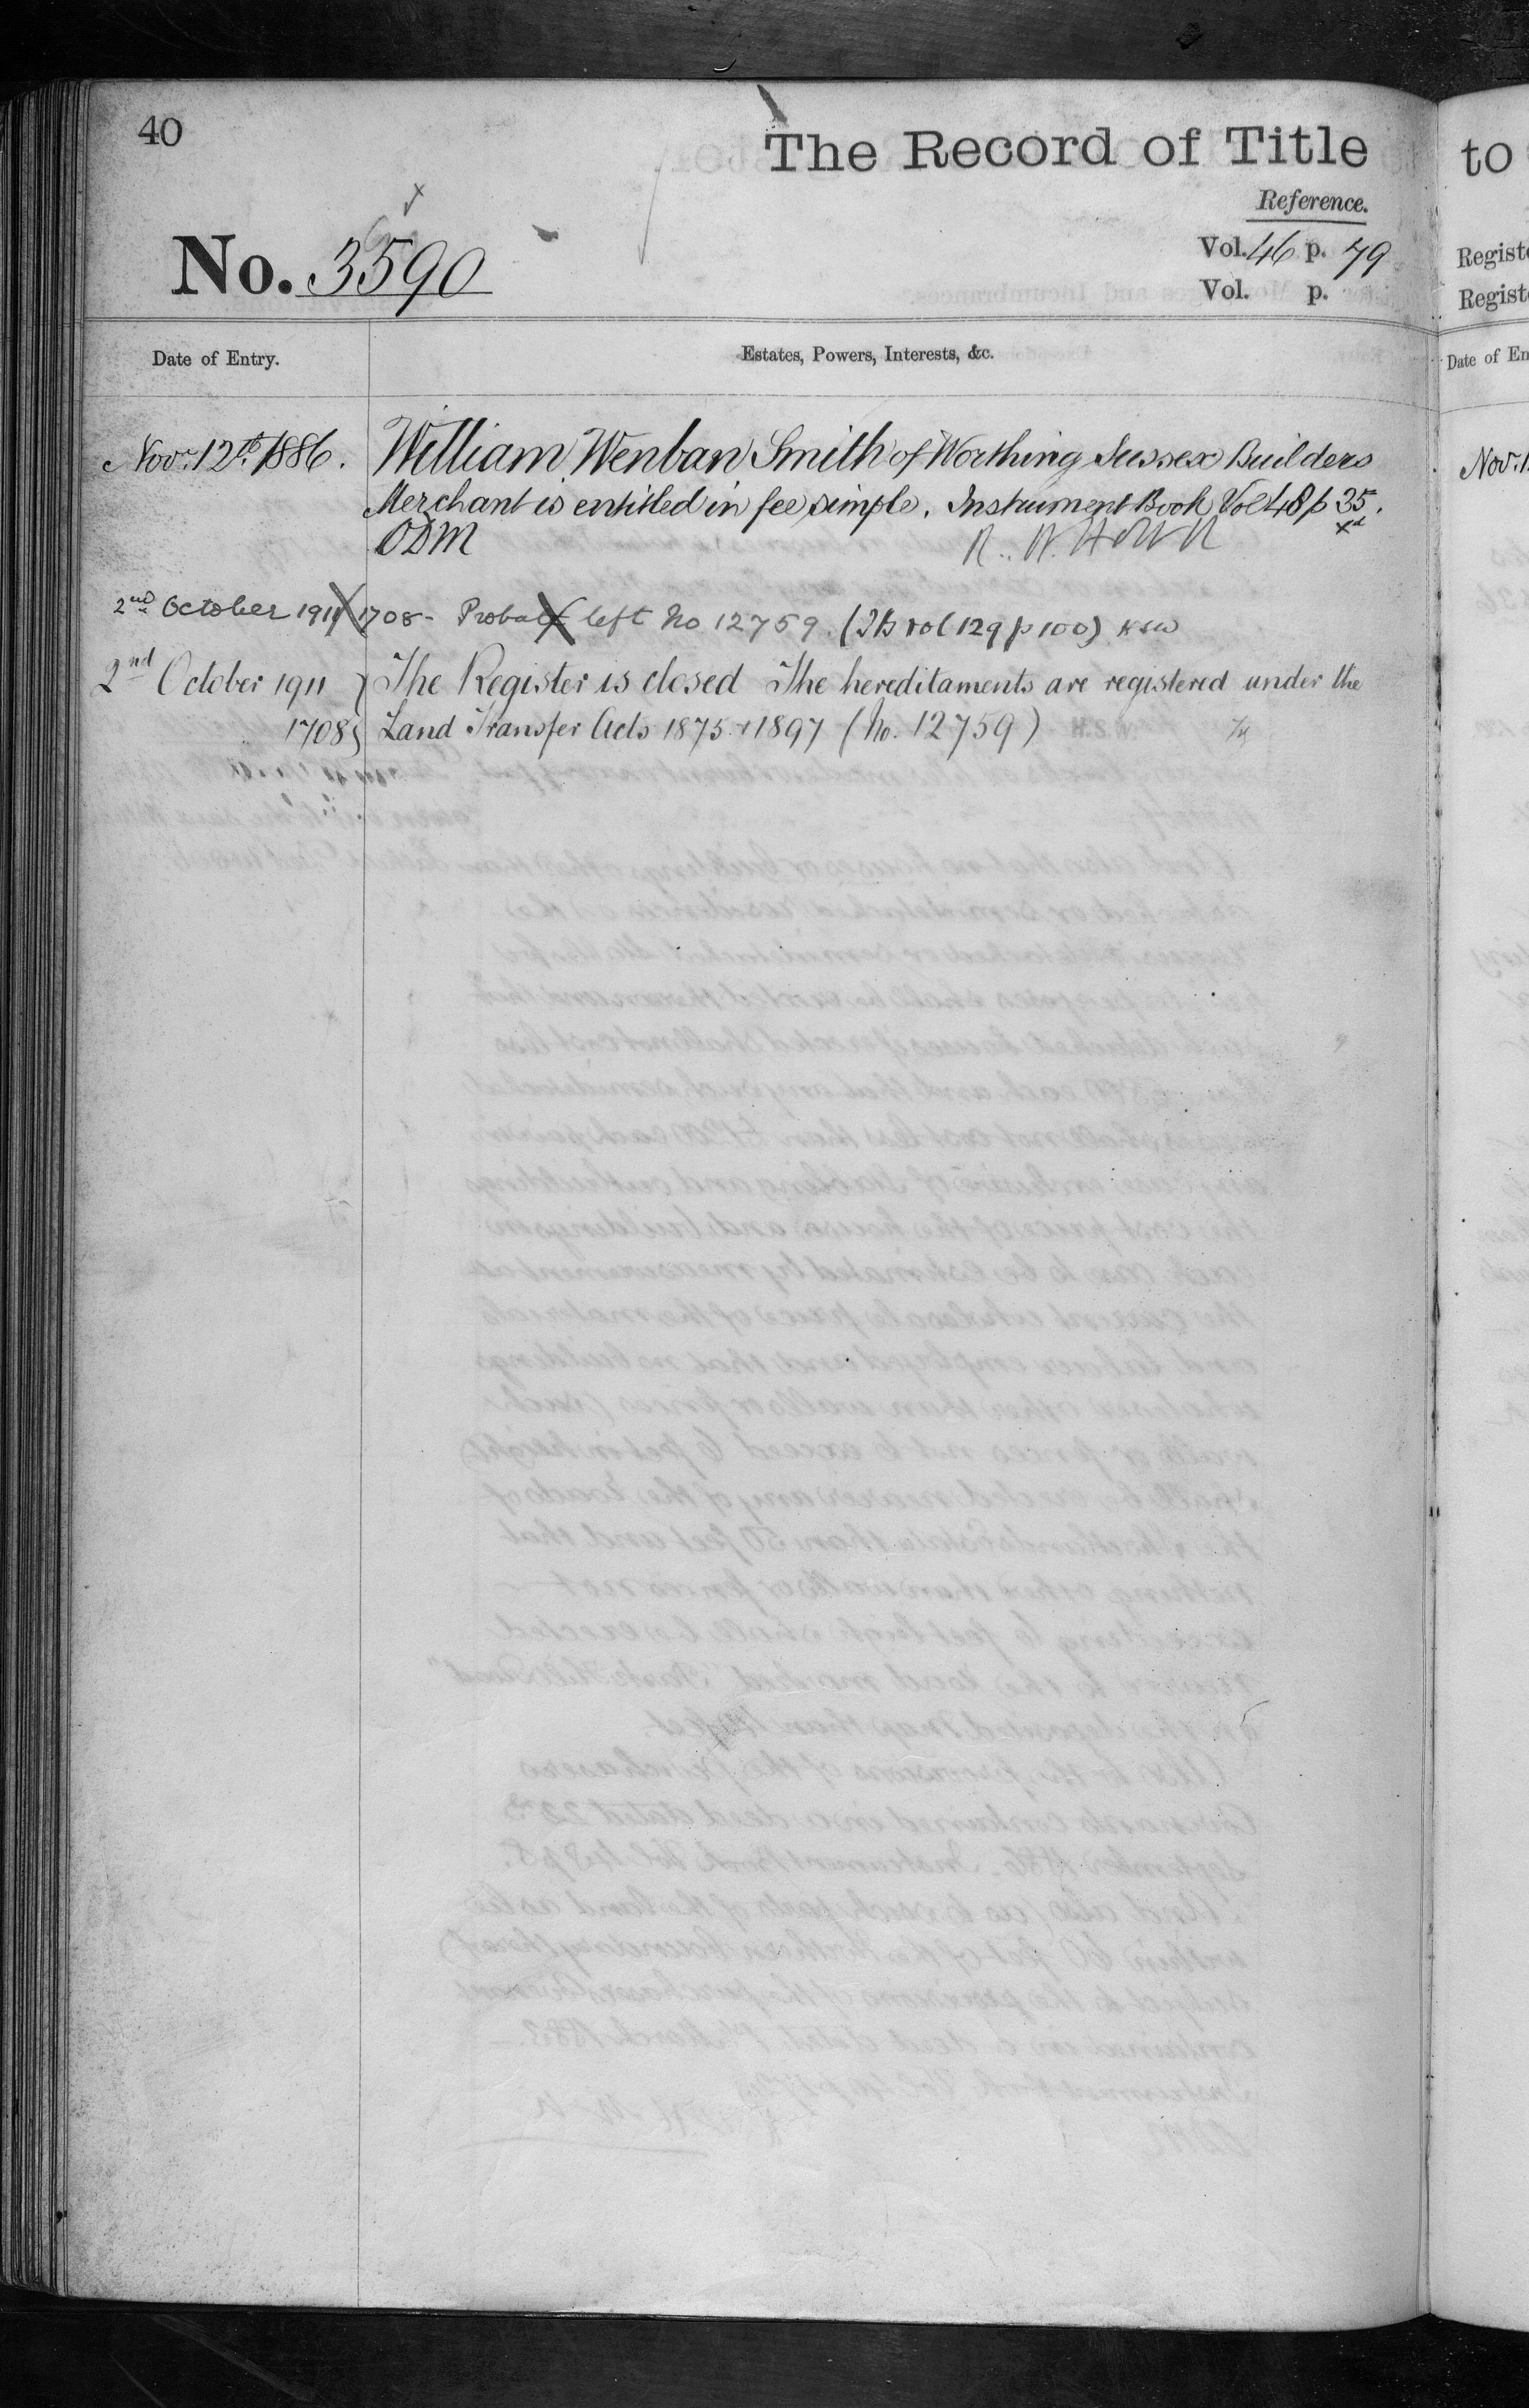 40
The Record of Title
Reference.
No. 3590
Vol. 46 p. 79
Vol. p.
Date of Entry.
Estates, Powers, Interests, &c.
Novr. 12th. 1886.
William Wenban Smith of Worthing Sussex Builders
Merchant is entitled in fee simple. Instrument Book Vol 48 p 35.
ODM
2nd October 1911 1708 - Probate left No 12759. (IB vol 129 p 100) KSW
2nd October 1911 } The Register is closed The hereditaments are registered under the
1708 } Land Transfer Acts 1875 + 1897 (No. 12759)
to
Registe
Registe
Date of En
Nov. 1